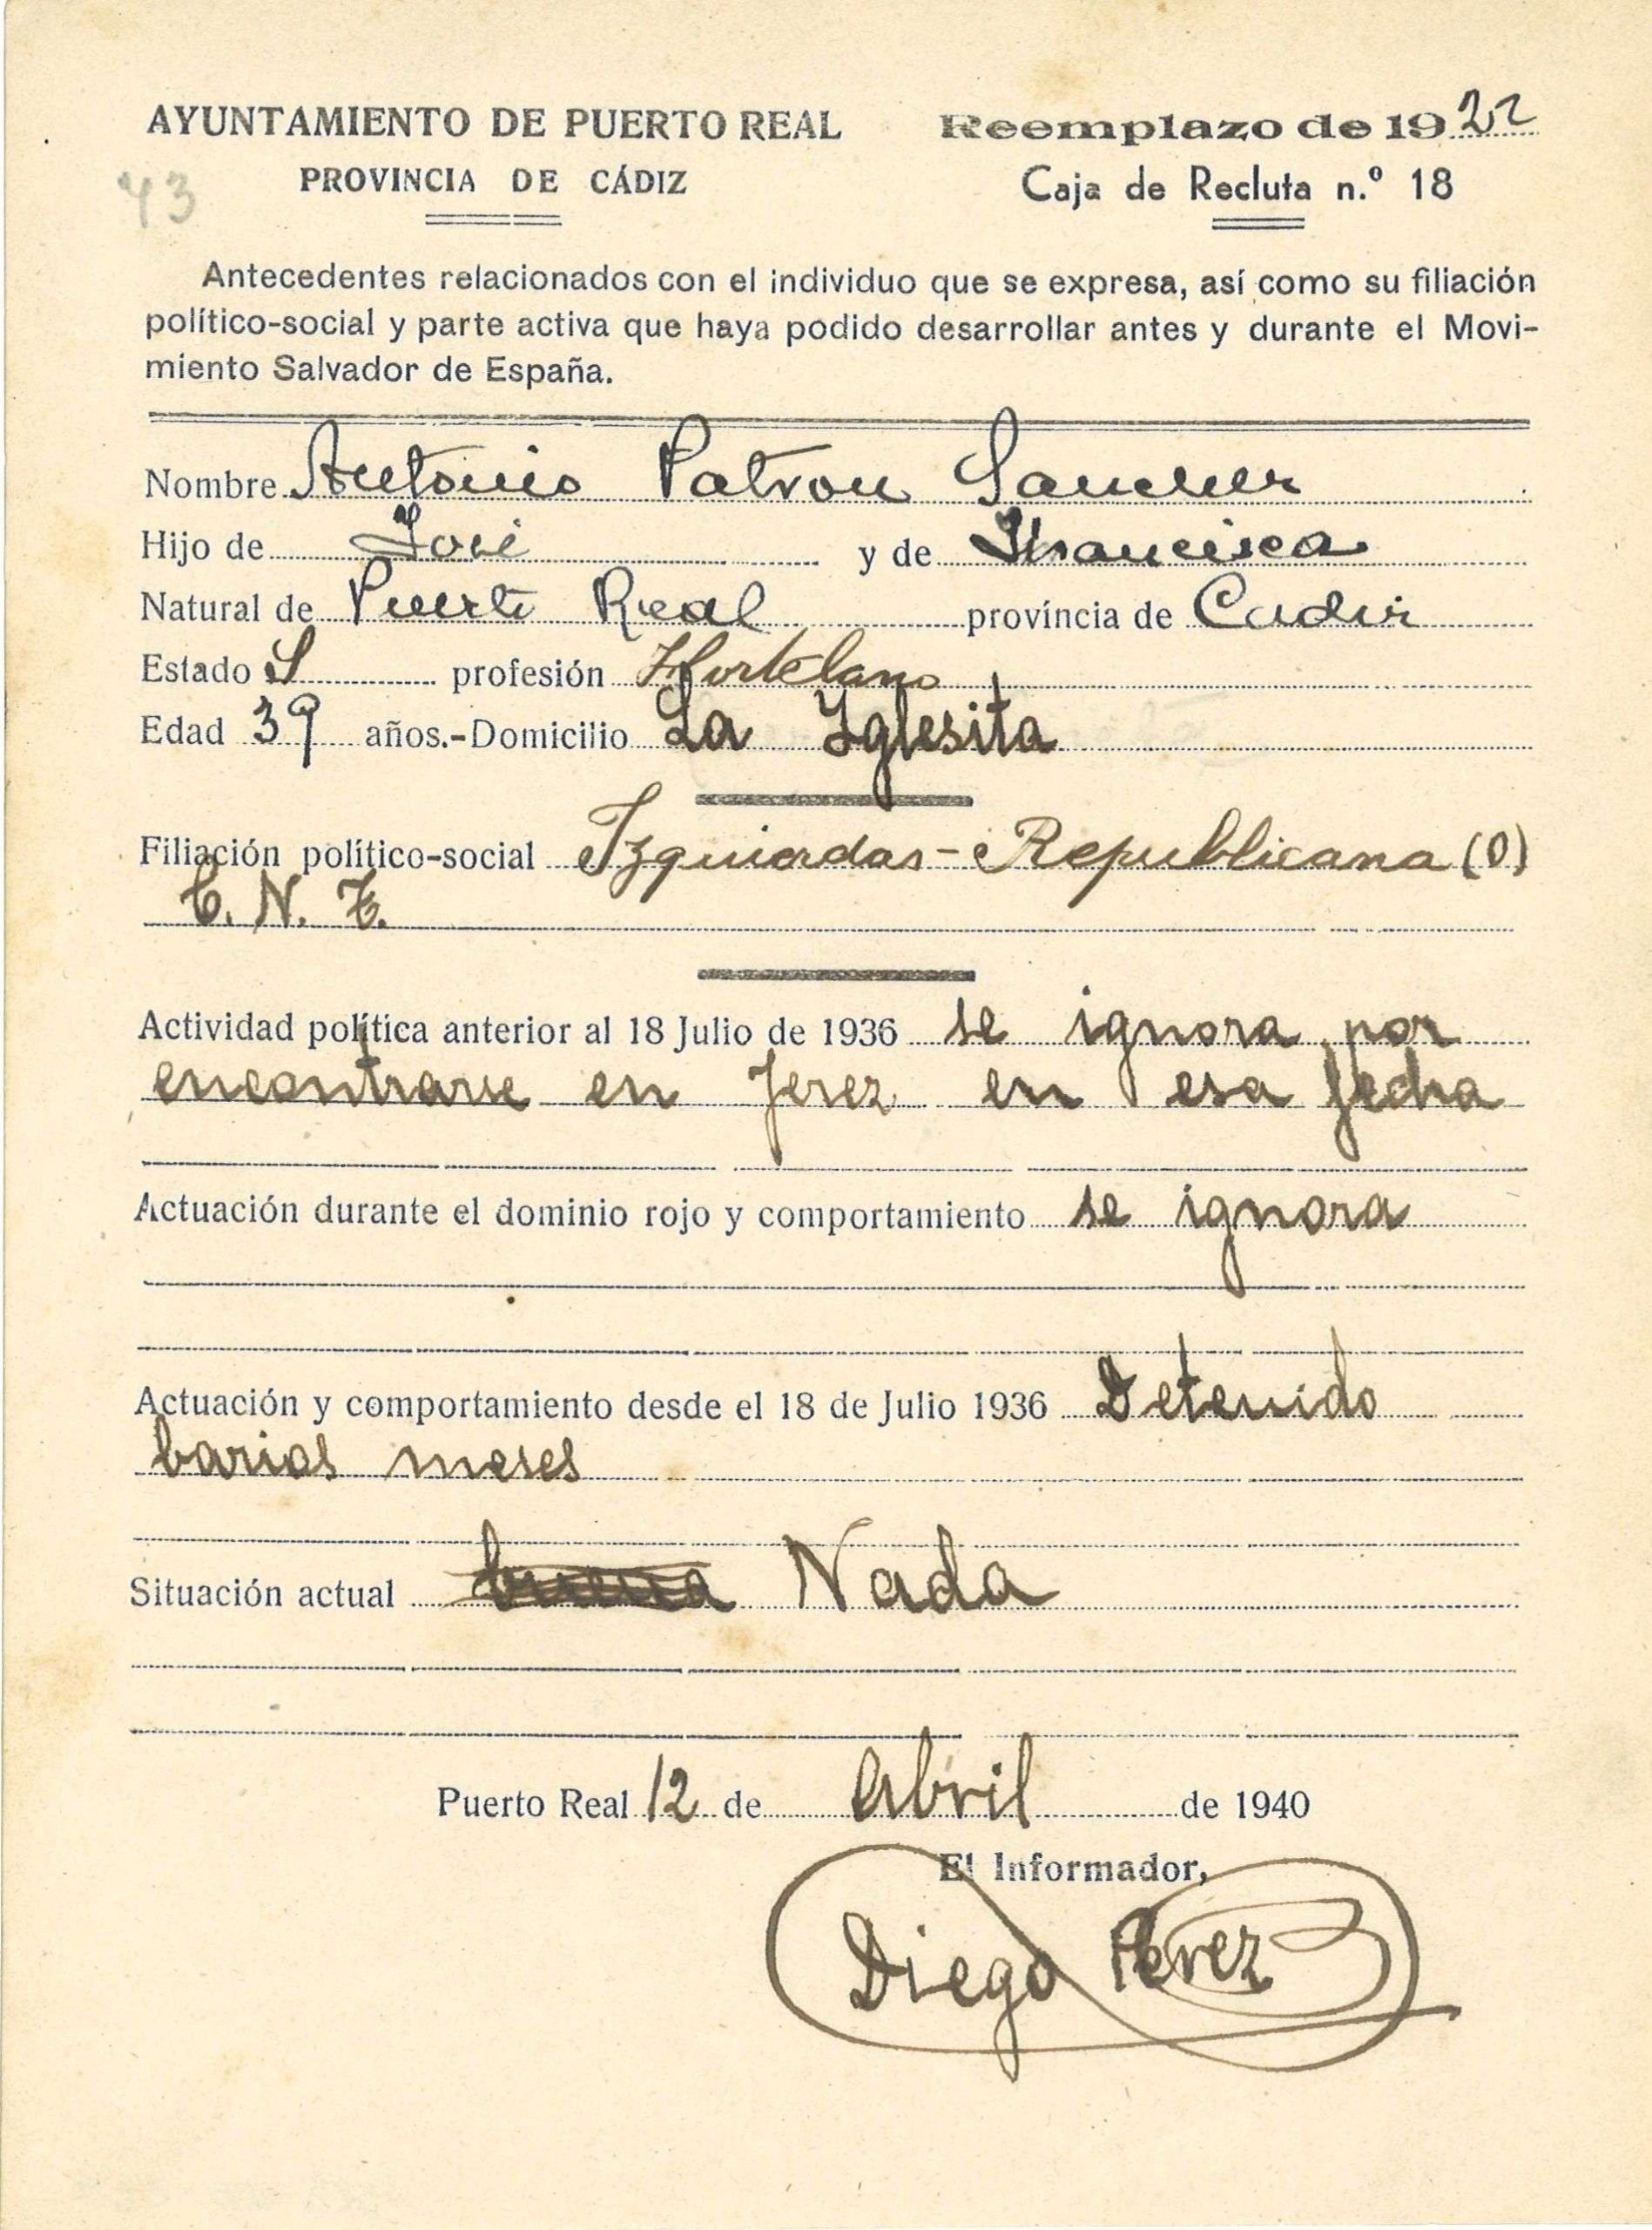 AYUNTAMIENTO DE PUERTO REAL
PROVINCIA DE CÁDIZ
Reemplazo de 1922
Caja de Recluta n.º 18
43
Antecedentes relacionados con el individuo que se expresa, así como su filiación
político-social y parte activa que haya podido desarrollar antes y durante el Movi-
miento Salvador de España.
Nombre Antonio Patron Sanchez
Hijo de José y de Francisca
Natural de Puerto Real provincia de Cadiz
Estado S profesión Hortelano
Edad 39 años.-Domicilio La Iglesita
Filiación político-social Izquierdas-Republicana (O)
C. N. T.
Actividad política anterior al 18 Julio de 1936 se ignora por
encontrarse en Jerez en esa fecha
Actuación durante el dominio rojo y comportamiento se ignora
Actuación y comportamiento desde el 18 de Julio 1936 Detenido
barios meses
Situación actual buena Nada
Puerto Real 12 de Abril de 1940
El Informador,
Diego Perez